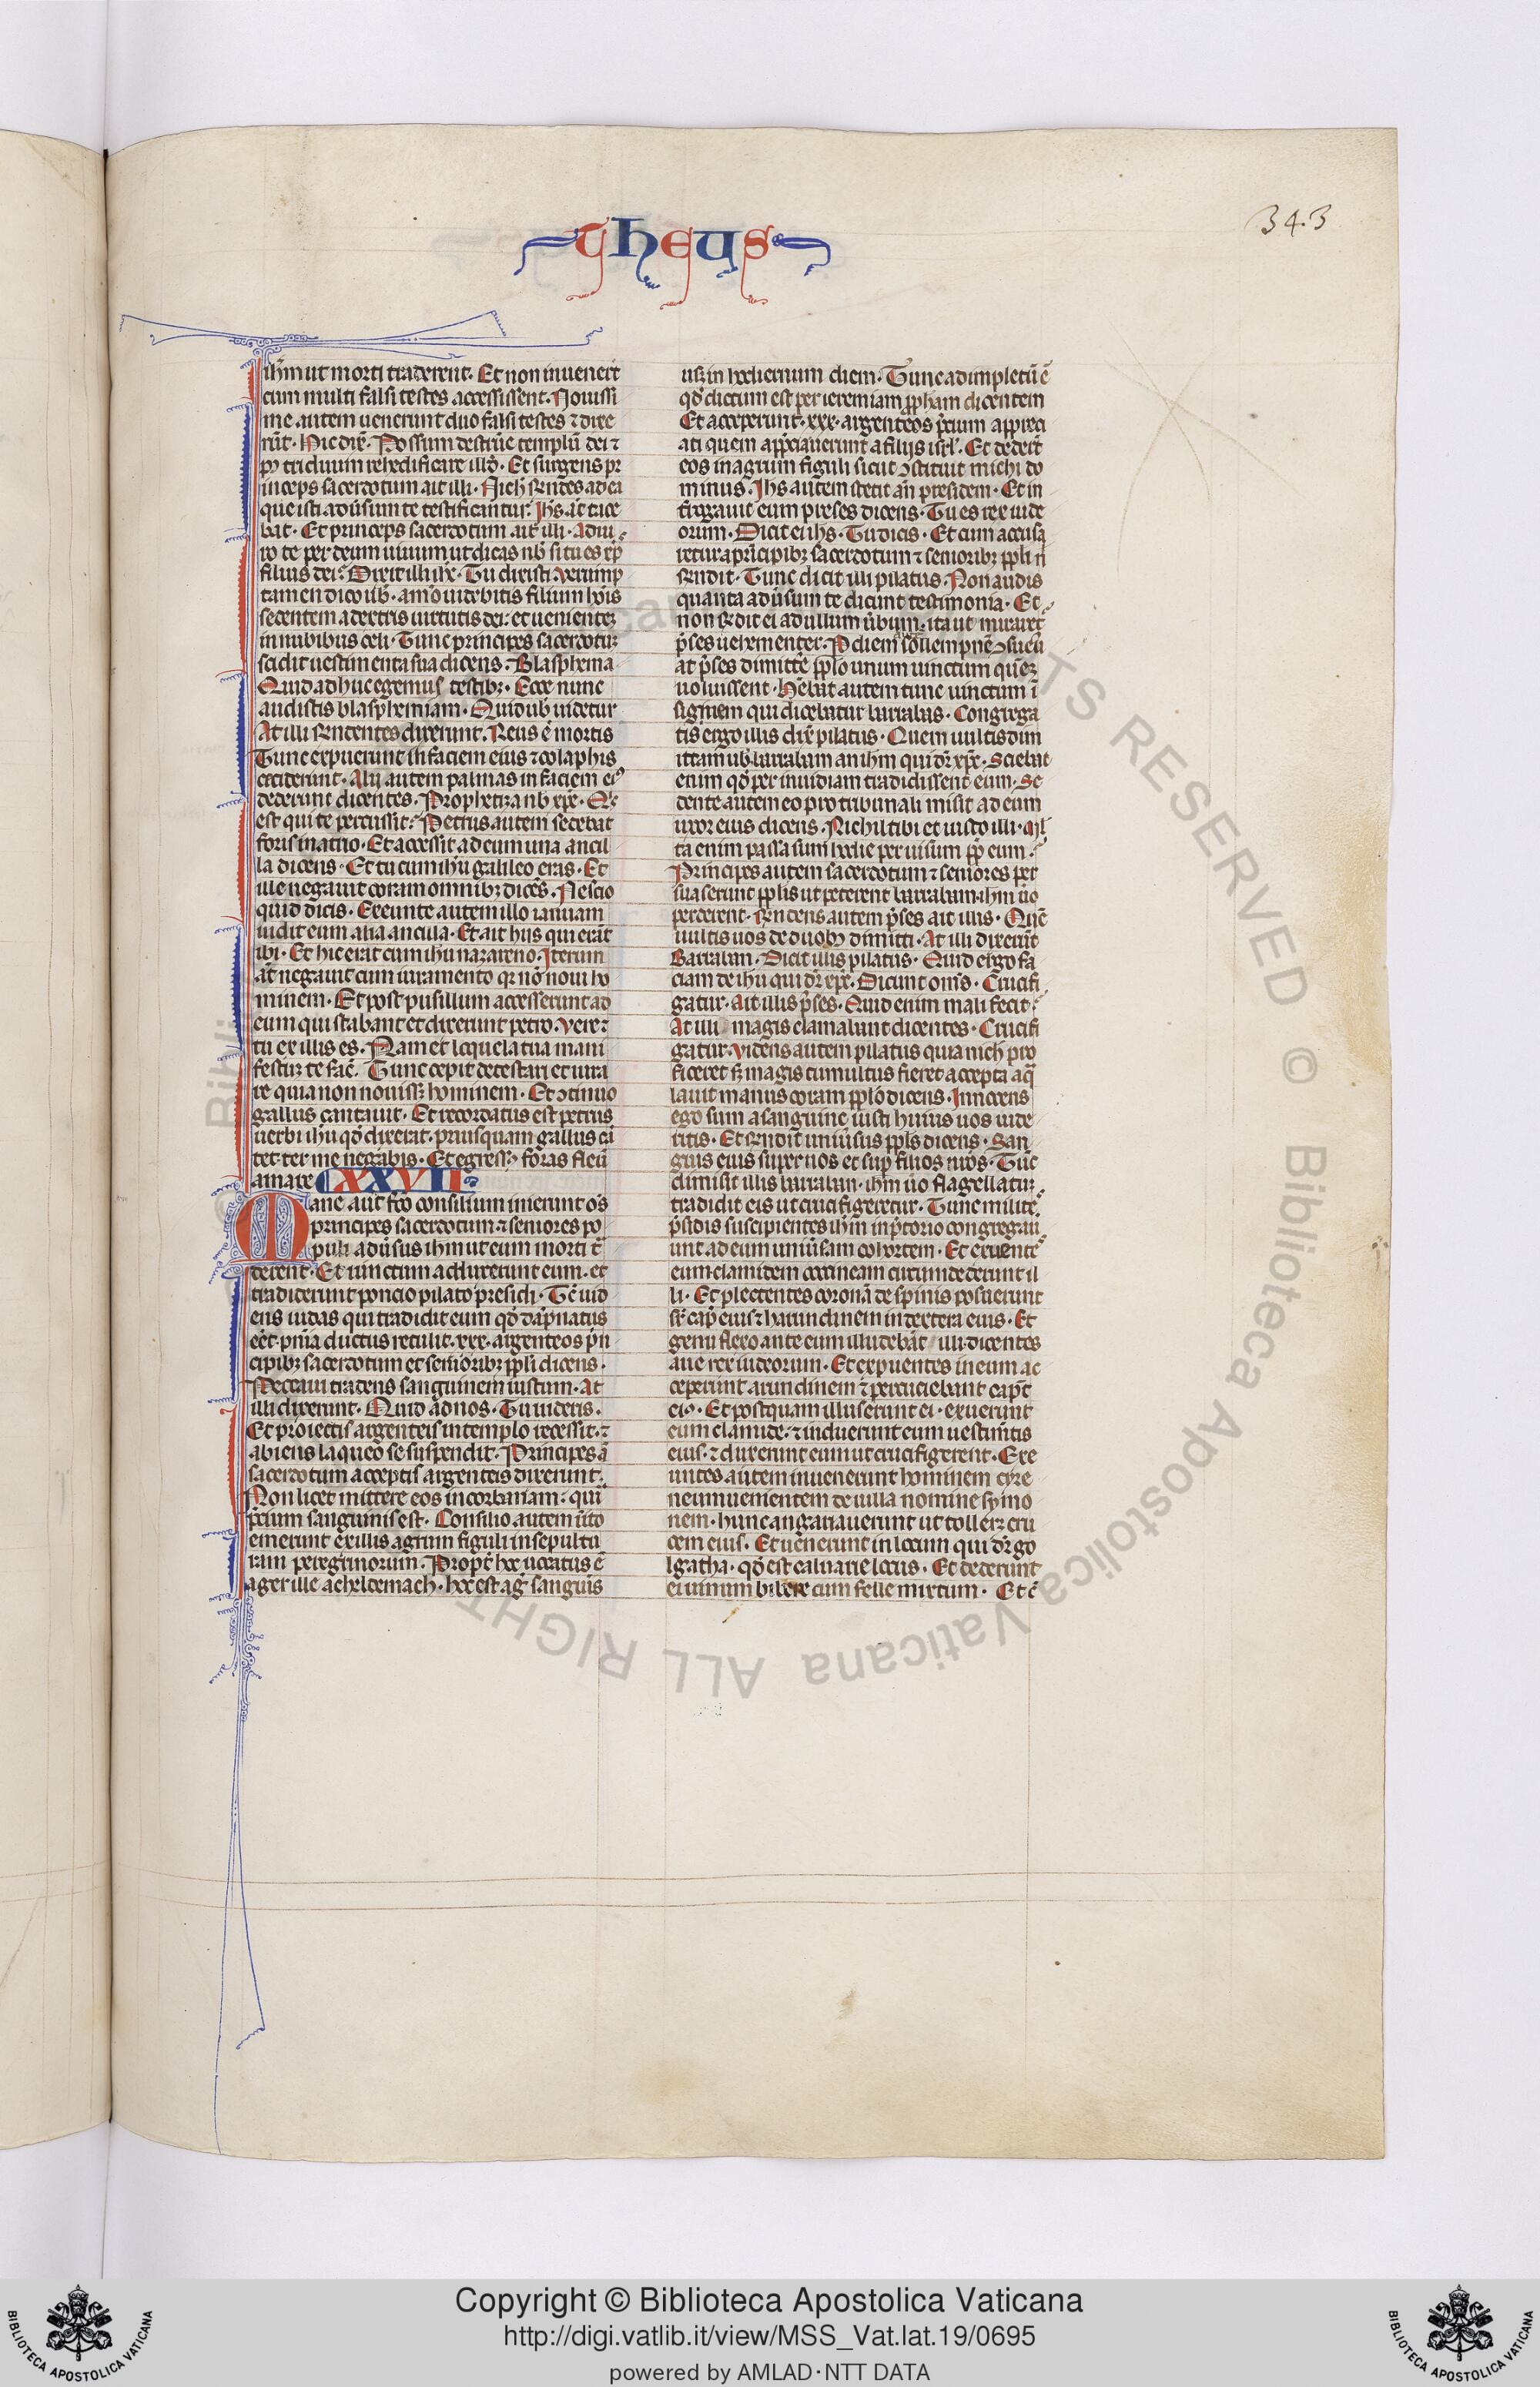 theus
343
ihm ut morti traderent. Et non inuenerūt
cum multi falsi testes accessissent. Nouissi
me autem uenerunt duo falsi testes ⁊ dixe
rūt. Hic dixꝰ. Possum destrue templū dei ⁊
pꝰ triduum rehedificare illḋ. Et surgens pr
inceps sacerdotum ait illi. Nich̅ r̅ndes ad ea
que isti adūsum te testificantur. Ihs a̅t tace
bat. Et princeps sacerdotum ait illi. Adiu
ro te per deum uiuum ut dicas nb̅ si tu es xp̅
filius dei. Dixit illi ihc̅. Tu dixisti. Verump
tamen dico ub̅. amo uidebitis filium hoı̅s
sedentem a dextris uirtutis dei. et uenientez
in nubibus celi. Tunc princeps sacerdotuz
scidit uestimenta sua dicens. Blasphema
Quid adhuc egemus testibꝫ. Ecce nunc
audistis blasphemiam. Quid ub̅ uidetur
At illi r̅ndentes dixerunt. Reus ē mortis
Tunc expuerunt in faciem eius ⁊ colaphis
ceciderunt. Alij autem palmas in faciem eiꝰ
dederunt dicentes. Prophetiza nb̅ xp̅e. Qͥs
est qui te percussit. Petrus autem sedebat
foris in atrio. Et accessit ad eum una ancil
la dicens. Et tu cum ihu̅ galileo eras. Et
ille negauit coram omnibꝫ dice̅s. Nescio
quid dicis. Exeunte autem illo ianuam
uidit eum alia ancilla. Et ait hijs qui era̅t
ibi. Et hic erat cum ihu̅ nazareno. Iterum
a̅t negauit cum iuramento qr no̅ noui ho
minem. Et post pusillum accesserunt ad
eum qui stabant et dixerunt petro. Vere ⁊
tu ex illis es. Nam et loquela tua mani
festuꝫ te fac̅. Tunc cepit detestari et iura
re quia non nouissꝫ hominem. Et ↄtinuo
gallus cantauit. Et recordatus est petrus
uerbi ihu̅ qḋ dixerat. priusquam gallus ca̅
tet. ter me negabis. Et egressꝰ foras fleu̅
amare CXXVII.
Mane aut̅ fc̅o consilium inierunt oe̅s
principes sacerdotum ⁊ seniores po
puli adūsus ihm̅ ut eum morti t̅
derent. Et uinctum adduxerunt eum. et
tradiderunt poncio pilato presidi. Tc̅ uid
ens iudas qui tradidit eum qḋ da̅pnatus
eēt. pni̅a ductus retulit. xxx. argenteos pͥn
cipibꝫ sacerdotum et senioribꝫ pp̅li dicens.
Peccaui tradens sanguinem iustum. At
illi dixerunt. Quid ad nos. Tu uideris.
Et proiectis argenteis in templo recessit. ⁊
abiens laqueo se suspendit. Principes a̅
sacerdotum acceptis argenteis dixerunt.
Non licet mittere eos in corbanam. qui
precium sanguinis est. Consilio autem inito
emerunt ex illis agrum figuli in sepultu
ram peregrinorum. Propt̅ hoc uocatus ē
ager ille acheldemach. hoc est ag̅ sanguis
usꝫ in hodiernum diem. Tunc adimpletū ē
qḋ dictum est per ieremiam pp̅ham dicentem
Et acceperunt. xxx. argenteos p̅cium apprecı
ati quem app̅ciauerunt a filijs isrl̅. Et dederūt
eos in agrum figuli sicut ↄstituit michi do
minus. Ihs autem stetit an̅ presidem. Et in
t̅rogauit eum preses dicens. Tu es rex iude
orum. Dicit ei ihs. Tu dicis. Et cum accusa
retur a pͥncipibꝫ sacerdotum ⁊ senioribꝫ pp̅li n̅
r̅ndit. Tunc dicit illi pilatus. Non audis
quanta adūsum te dicunt testimonia. Et
non r̅ndit ei ad ullum ūbum. ita ut miraret̅
p̅ses uehementer. P diem solle̅mpne̅ ↄsueu̅
at p̅ses dimitte̅ pp̅lo unum uinctum quē̅ꝫ
uoluissent. He̅bat autem tunc uinctum i̅
signem qui dicebatur barrabas. Congrega
tis ergo illis dix̅ pilatus. Quem uultis dim
ittam ub̅. barraban an ihm̅ qui dr̅ xp̅c. Sciebat
enim qḋ per inuidiam tradidissent eum. Se
dente autem eo pro tribunali misit ad eum
uxor eius dicens. Nichil tibi et iusto illi. Ml̅
ta enim passa sum hodie per uisum pp̅ eum.
Principes autem sacerdotum ⁊ seniores per
suaserunt pp̅lis ut peterent barraban. ihm̅ ūo
perderent. R̅ndens autem p̅ses ait illis. Que̅
uultis uos de duobꝫ dimitti. At illi dixerūt
Barraban. Dicit illis pilatus. Quid ergo fa
ciam de ihu̅ qui dr̅ xp̅c. Dicunt oms̅. Crucifi
gatur. Ait illis p̅ses. Quid enim mali fecit
At illi magis clamabant dicentes. Crucifi
gatur. Videns autem pilatus quia nich̅ pro
ficeret sꝫ magis tumultus fieret accepta aq̅
lauit manus coram pp̅lo dicens. Innocens
ego sum a sanguine iusti huius uos uide
ritis. Et r̅ndit uniūsus pp̅ls dicens. San
guis eius super nos et sup̅ filios nr̅os. Tūc
dimisit illis barraban. ihm̅ ūo flagellatuꝫ
tradidit eis ut crucifigeretur. Tunc milite̅
p̅sidis suscipientes ihm̅ in p̅torio congregau
unt ad eum uniūsam cohortem. Et exuente
eum. clamidem coccineam circumdederunt il
li. Et plectentes corona̅ de spinis posuerunt
sr̅ cap̅ eius ⁊ harundinem in dextera eius. Et
genu flexo ante eum illudeba̅t illi. dicentes
aue rex iudeorum. Et expuentes in eum ac
ceperunt arundinem ⁊ percuciebant cap̅t
eiꝰ. Et postquam illuserunt ei. exuerunt
eum clamide. ⁊ induerunt eum uestimentis
eius. ⁊ duxerunt eum ut crucifigerent. Exe
untes autem inuenerunt hominem cyre
neum uenientem de uilla nomine symo
nem. hunc angariauerunt ut tolleꝫ cru
cem eius. Et uenerunt in locum qui dr̅ go
lgatha. qḋ est caluarie locus. Et dederunt
ei uinum bibere cum felle mixtum. Et c̅
© Biblioteca Apostolica Vaticana ALL RIGHTS RESERVED © Biblioteca Apostolica Vaticana ALL RIGHT
Copyright © Biblioteca Apostolica Vaticana
http://digi.vatlib.it/view/MSS_Vat.lat.19/0695
powered by AMLAD·NTT DATA
BIBLIOTECA APOSTOLICA VATICANA
BIBLIOTECA APOSTOLICA VATICANA